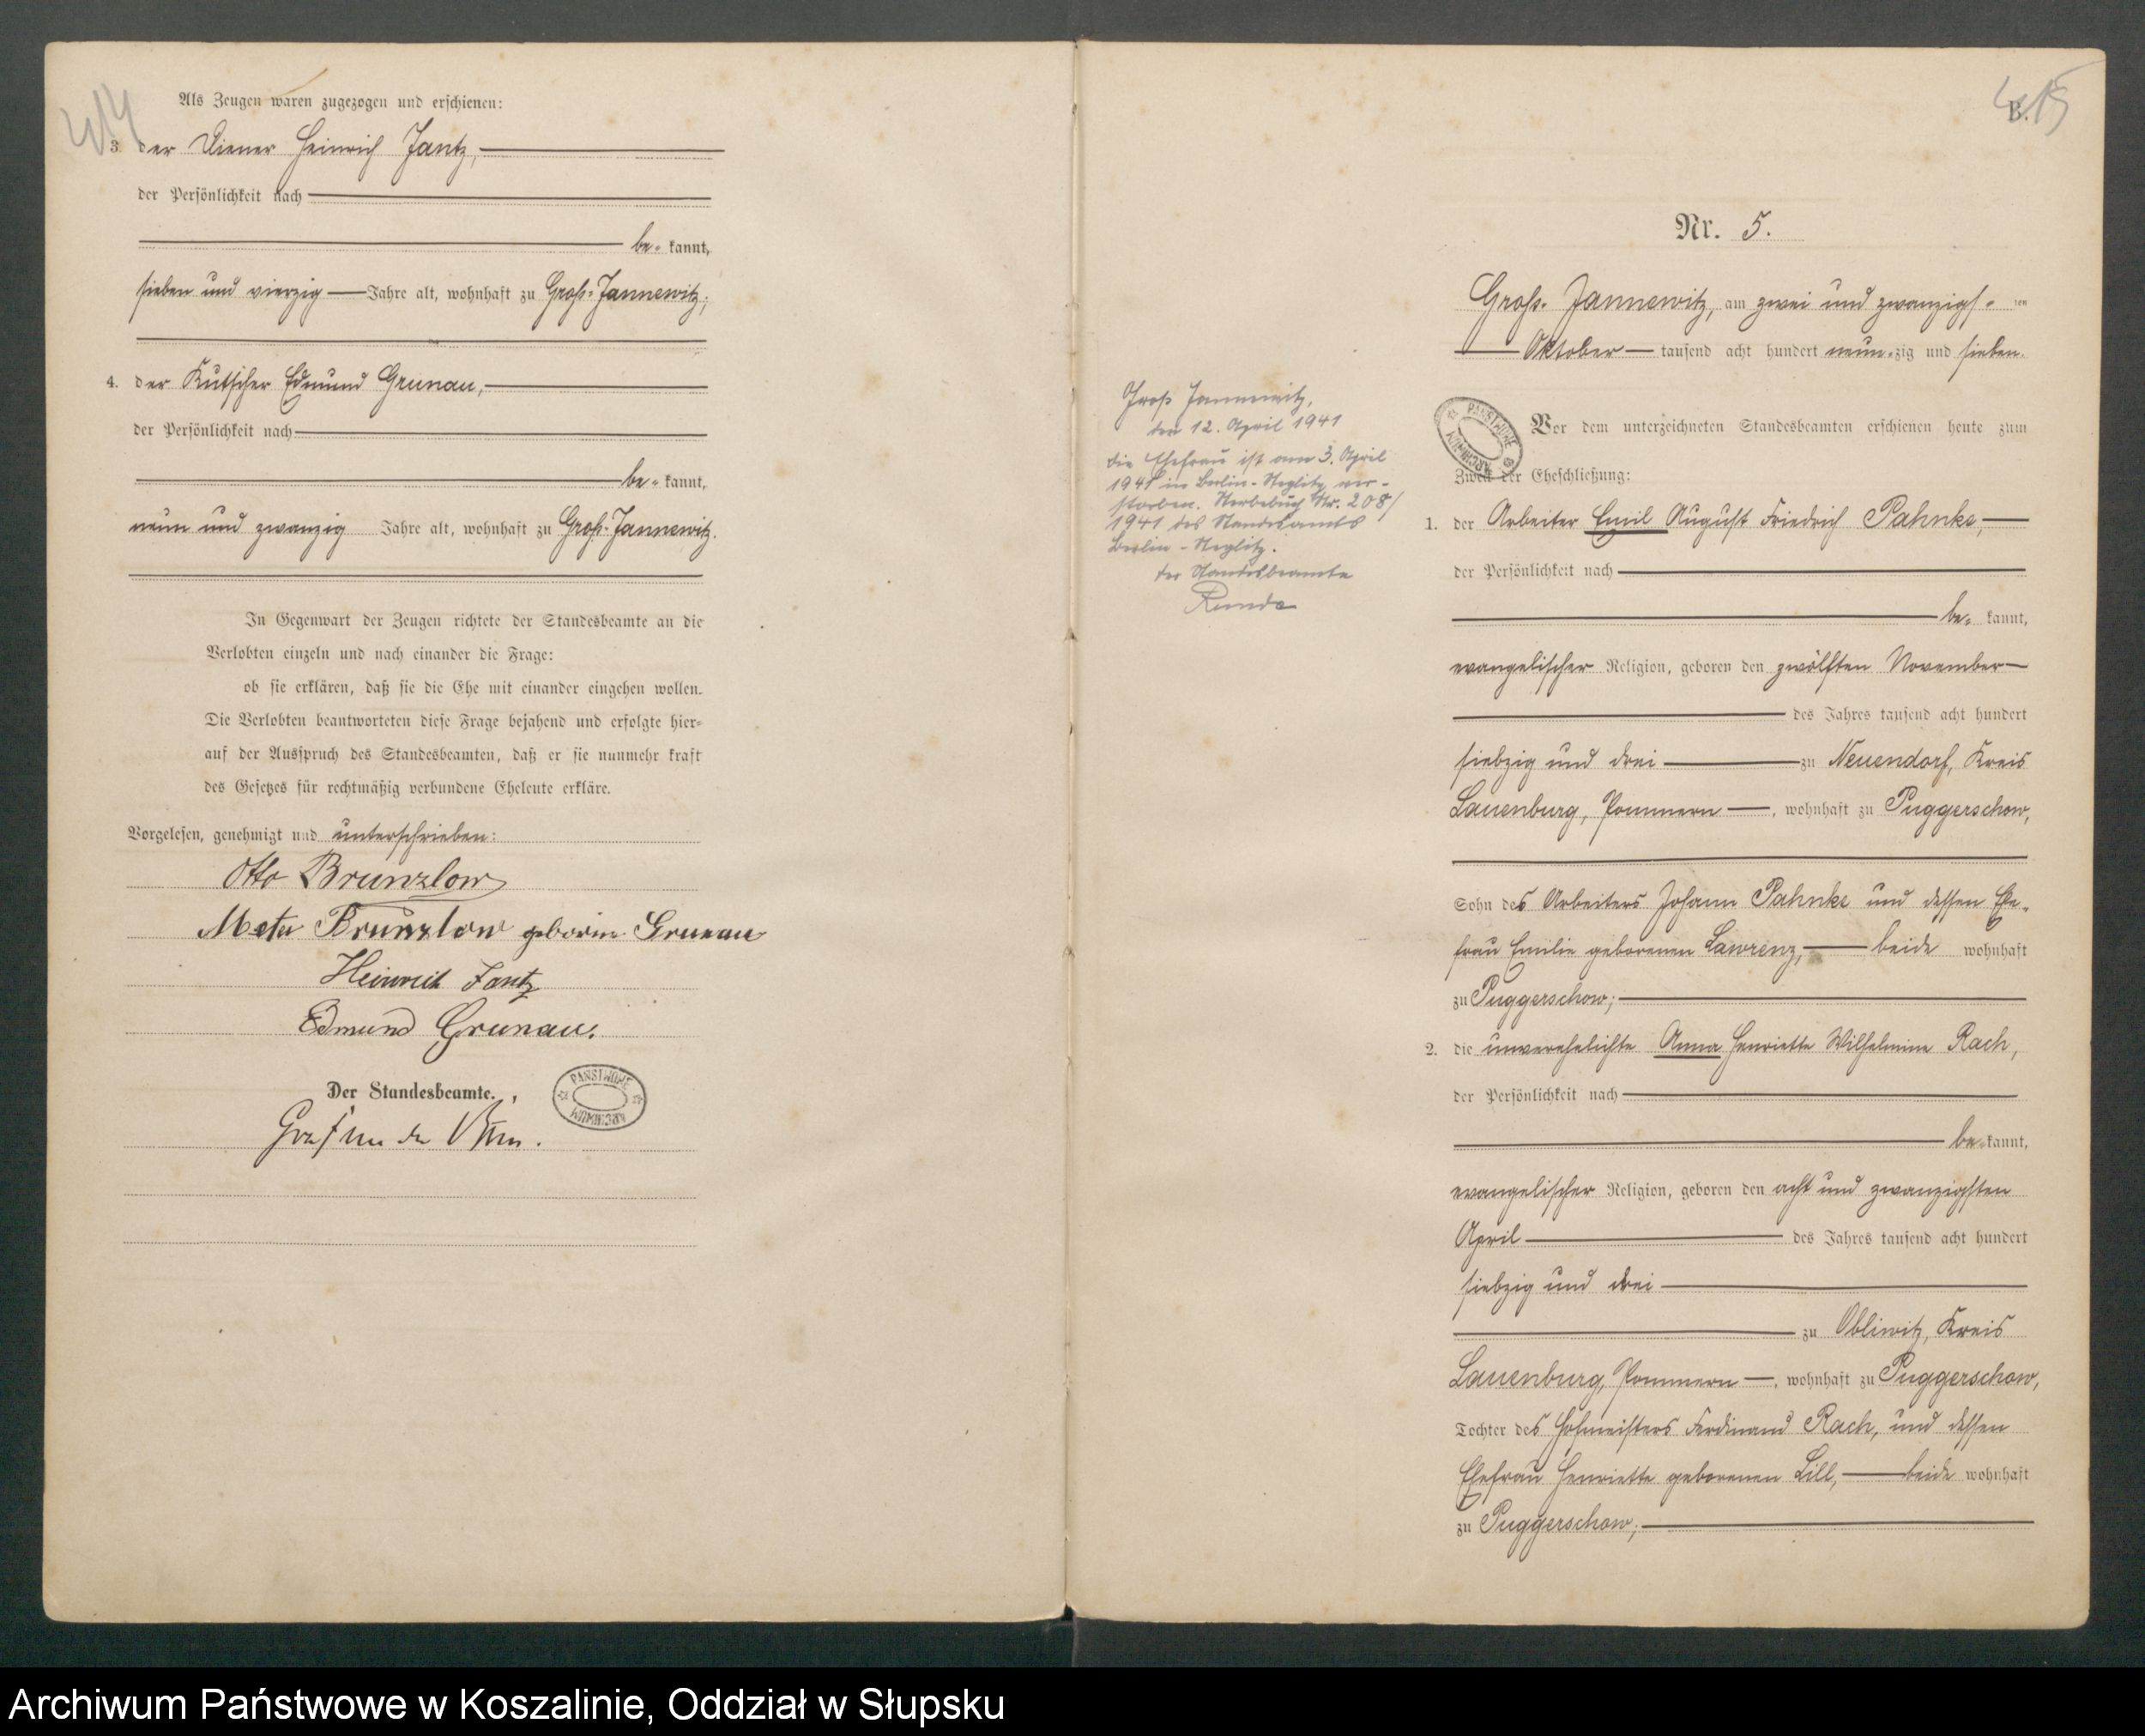 414
Als Zeugen waren zugezogen und erschienen:
3. der Diener Heinrich Jantz,
der Persönlichkeit nach
be- kannt,
sieben und vierzig Jahre alt, wohnhaft zu Groß-Jannewitz;
4. der Kutscher Edmund Grunau,
der Persönlichkeit nach
be- kannt,
neun und zwanzig Jahre alt, wohnhaft zu Groß-Jannewitz.
In Gegenwart der Zeugen richtete der Standesbeamte an die
Verlobten einzeln und nach einander die Frage:
ob sie erklären, daß sie die Ehe mit einander eingehen wollen.
Die Verlobten beantworteten diese Frage bejahend und erfolgte hier-
auf der Ausspruch des Standesbeamten, daß er sie nunmehr kraft
des Gesetzes für rechtmäßig verbundene Eheleute erkläre.
Vorgelesen, genehmigt und unterschrieben:
Otto Brunzlow
Meta Brunzlow geborene Grunau
Heinrich Jantz
Edmund Grunau.
Der Standesbeamte.
PAŃSTWOWE ARCHIWUM
415
B.
Nr. 5.
Groß-Jannewitz, am zwei und zwanzigs- ten
Oktober tausend acht hundert neun-zig und sieben.
PAŃSTWOWE ARCHIWUM
Vor dem unterzeichneten Standesbeamten erschienen heute zum
Zweck der Eheschließung:
1. der Arbeiter Emil August Friedrich Pahnke,
der Persönlichkeit nach
be- kannt,
evangelischer Religion, geboren den zwölften November
des Jahres tausend acht hundert
siebzig und drei zu Neuendorf, Kreis
Lauenburg, Pommern, wohnhaft zu Puggerschow,
Sohn des Arbeiters Johann Pahnke und dessen Ehe-
frau Emilie geborenen Lawrenz, beide wohnhaft
zu Puggerschow;
2. die unverehelichte Anna Henriette Wilhelmine Rach,
der Persönlichkeit nach
be- kannt,
evangelischer Religion, geboren den acht und zwanzigsten
April des Jahres tausend acht hundert
siebzig und drei
zu Obliwitz, Kreis
Lauenburg, Pommern, wohnhaft zu Puggerschow,
Tochter des Hofmeisters Ferdinand Rach, und dessen
Ehefrau Henriette geborenen Lill, beide wohnhaft
zu Puggerschow;
Groß Jannewitz,
den 12. April 1941
Die Ehefrau ist am 3. April
1941 in Berlin-Steglitz ver-
storben. Sterbebuch Nr. 208/
1941 des Standesamts
Berlin-Steglitz.
Der Standesbeamte
Archiwum Państwowe w Koszalinie, Oddział w Słupsku